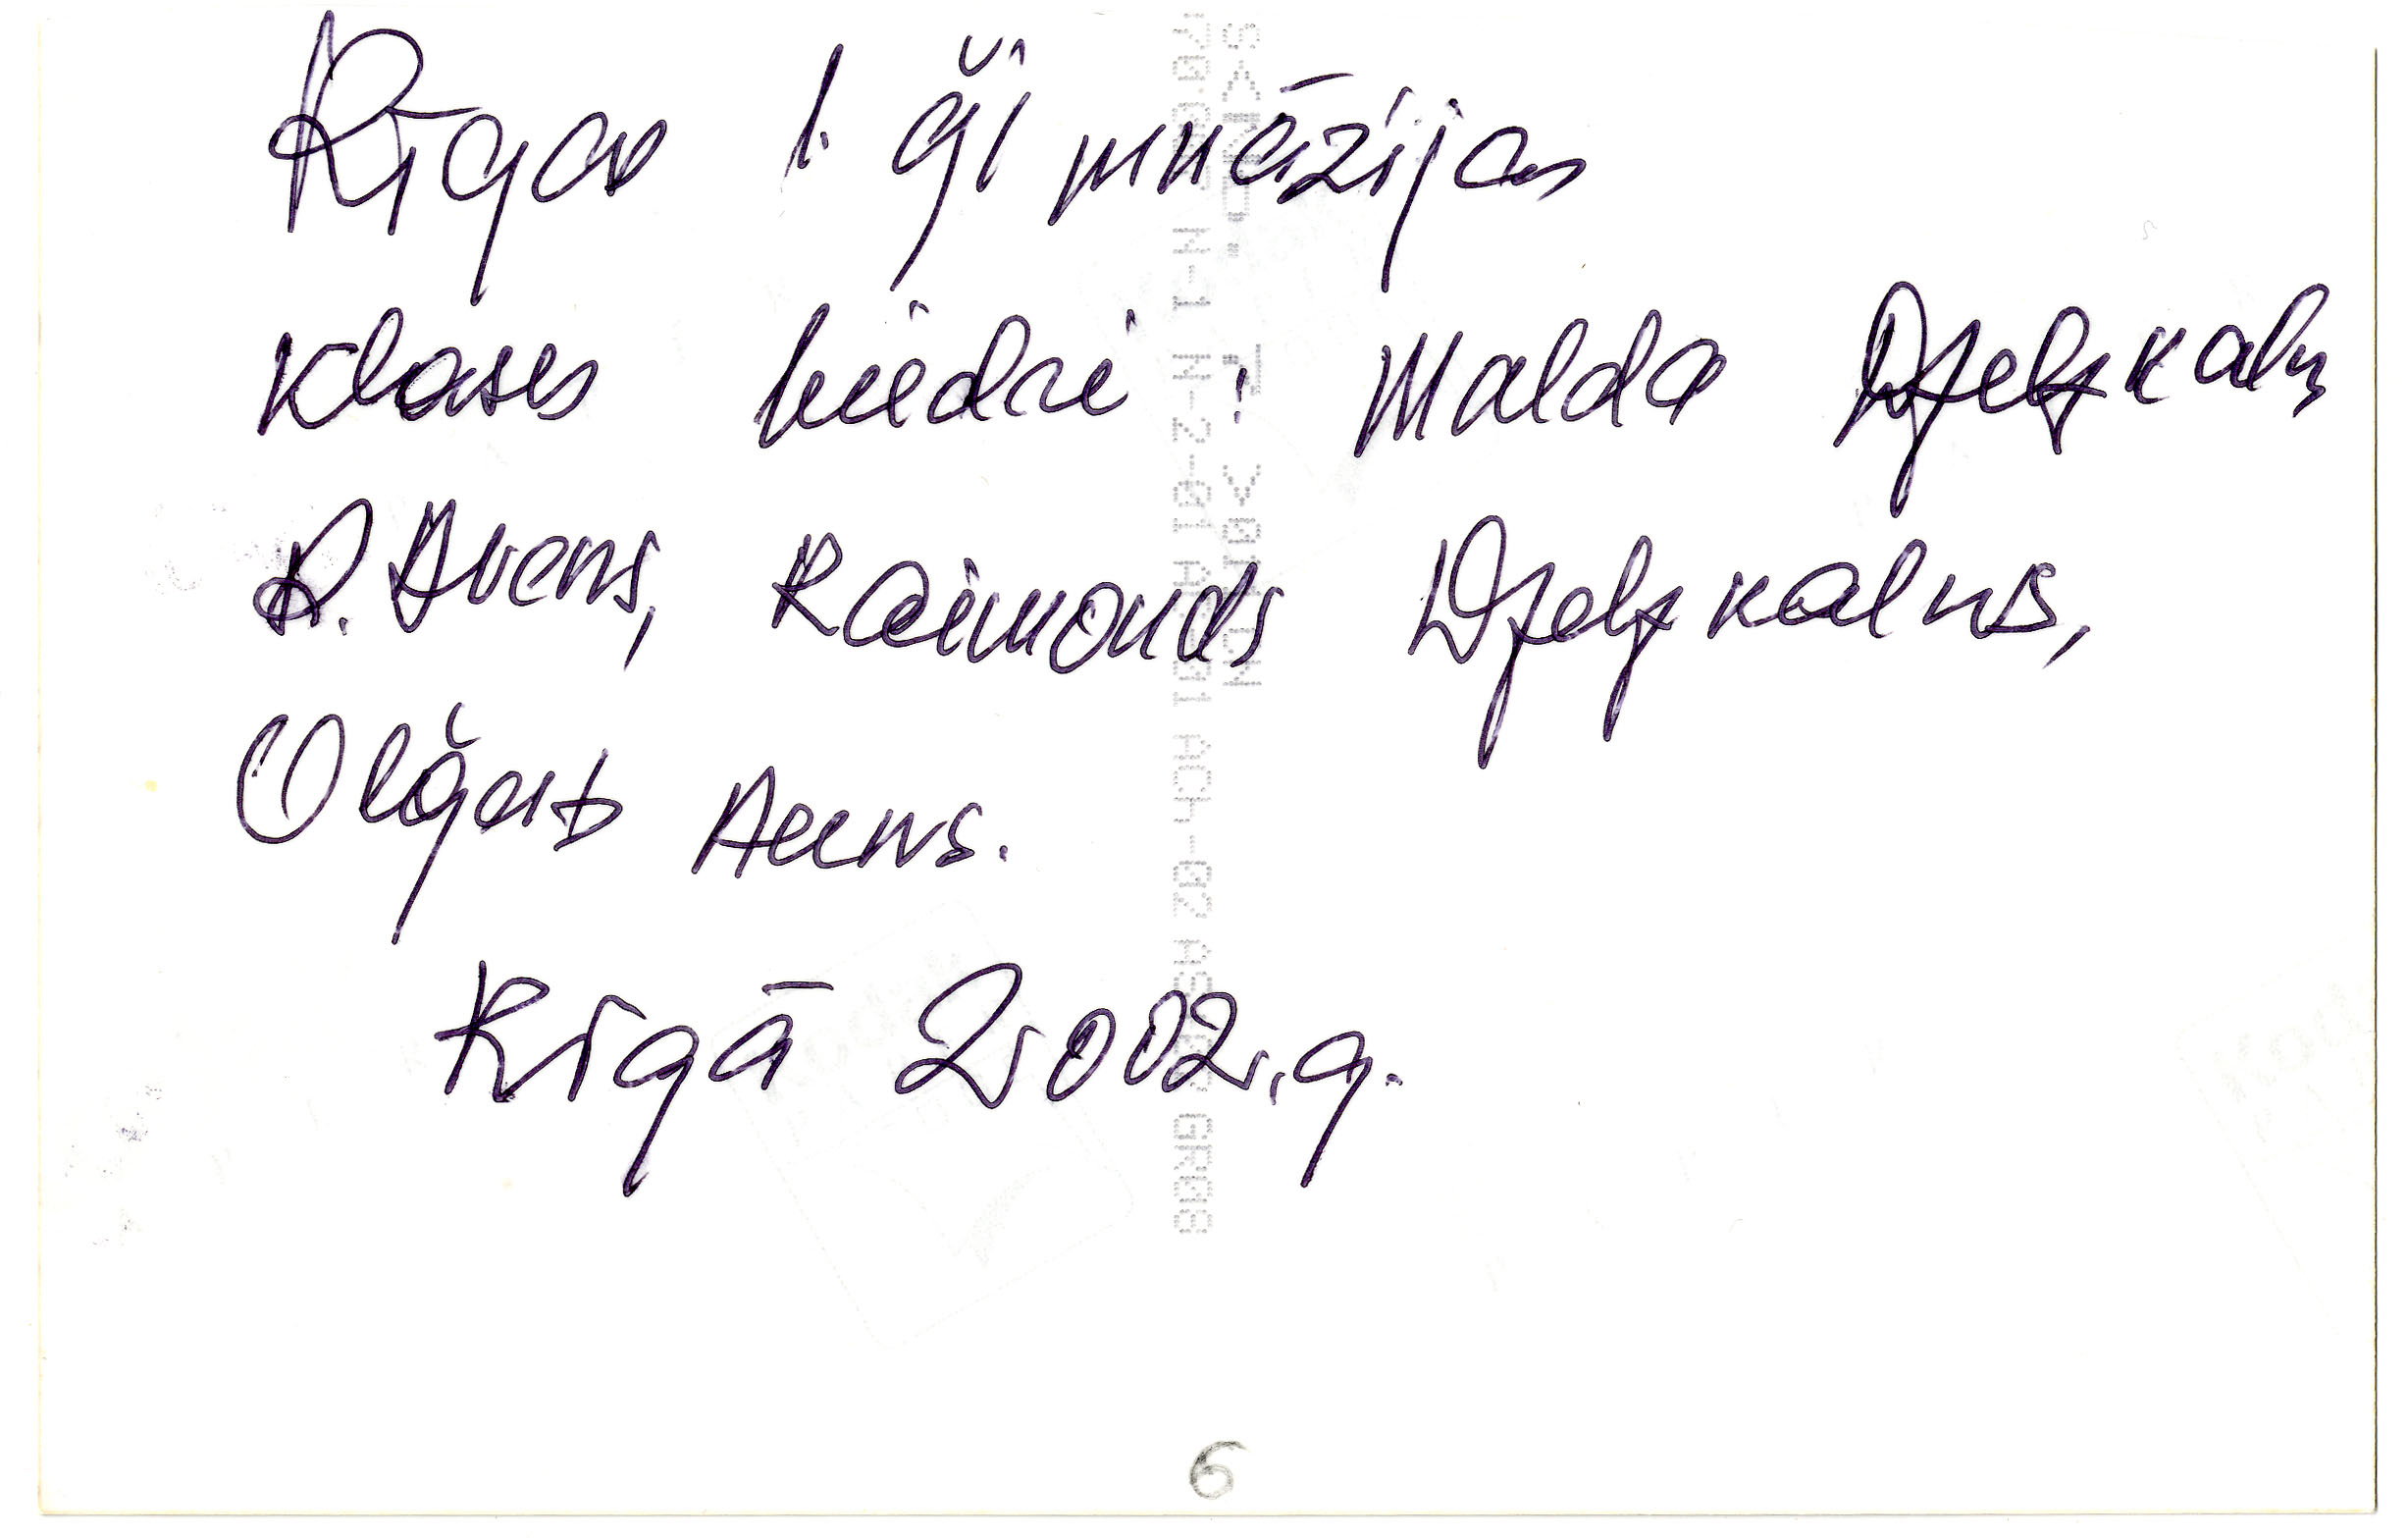 Rīgas 1. ģimnāzijas
klases biedri: Malda Dzelzkaln
R. Avens, Raimonds Dzelzkalns,
Oļģerts Auns.
Rīgā 2002. g.
6